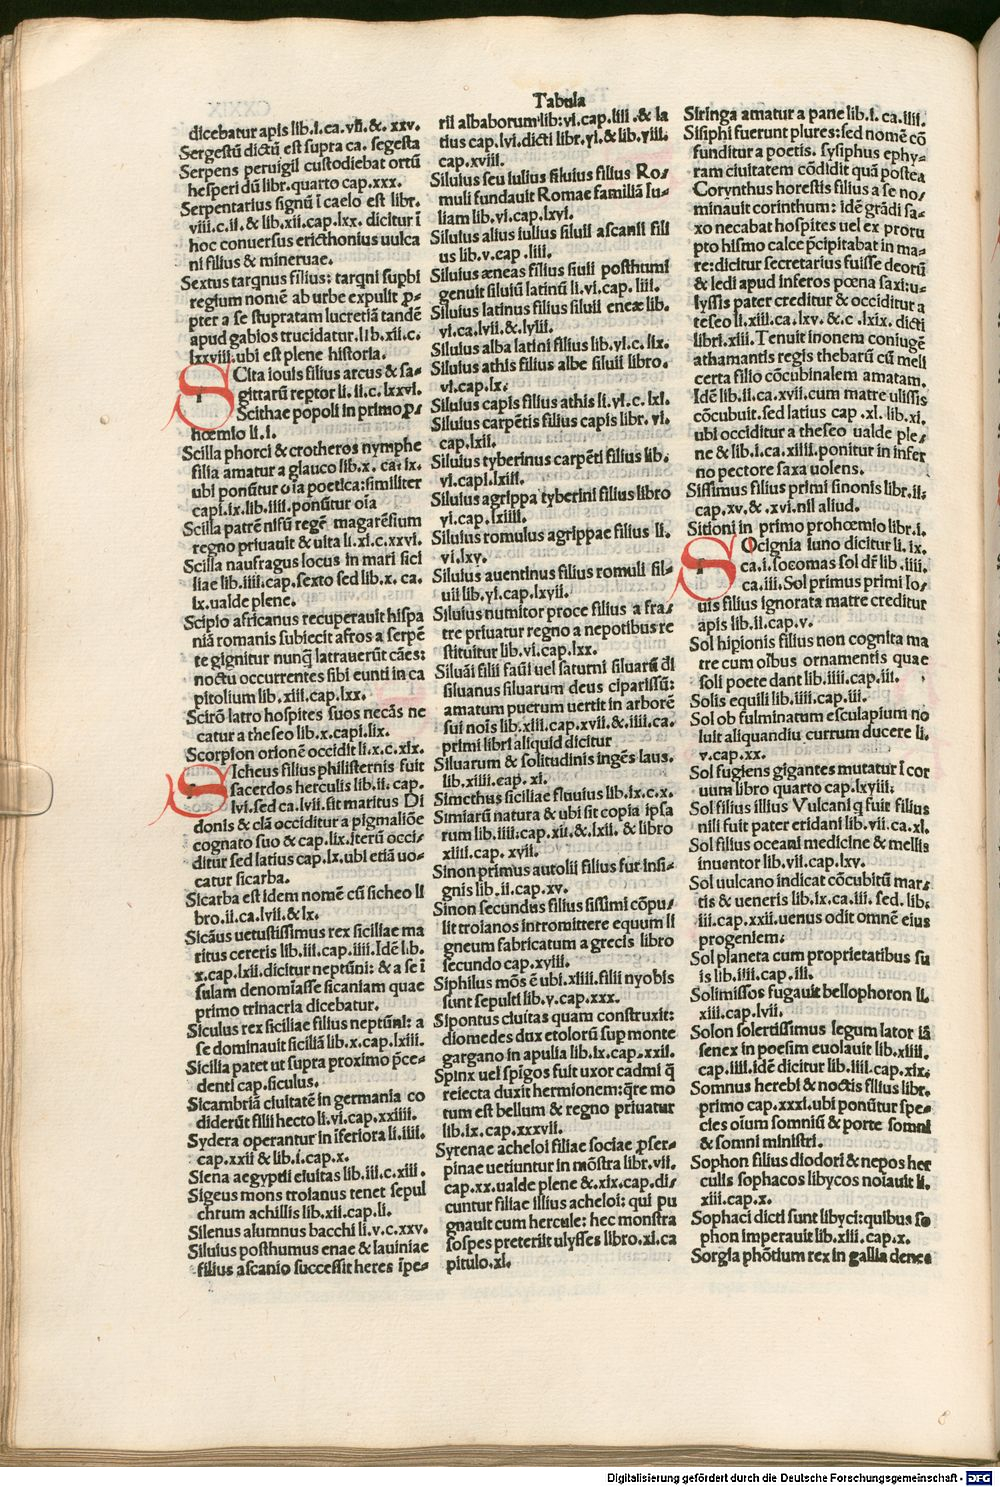 Tabula
dicebatur apis lib.i.ca.vii.&.xxv.
Sergestū dictū est supra ca. segesta
Serpens peruigil custodiebat ortū
hesperi dū libr.quarto cap.xxx.
Serpentarius signū ī caelo est libr.
viii.c.ii.& lib.xii.cap.lxx. dicitur ī
hoc conuersus ericthonius uulca
ni filius & mineruae.
Sextus tarqnus filius: tarqni supbi
regium nomē ab urbe expulit ꝓ-
pter a se stupratam lucretiā tandē
apud gabios trucidatur.lib.xii.c.
lxxviii.ubi est plene historia.
SCita iouis filius arcus & sa-
gittarū reptor li.ii.c.lxxvi.
Scithae popoli in primo ꝓ-
hoemio li.i.
Scilla phorci & crotheros nymphe
filia amatur a glauco lib.x. ca.ix.
ubi ponūtur oīa poetica:similiter
capi.ix.lib.iiii.ponūtur oīa
Scilla patrē nisū regē magarēsium
regno priuauit & uita li.xi.c.xxvi.
Scilla naufragus locus in mari sici
liae lib.iiii.cap.sexto sed lib.x. ca.
ix.ualde plene.
Scipio africanus recuperauit hispa
niā romanis subiecit afros a serpē
te gignitur nunq̄ latrauerūt cāes:
noctu occurrentes sibi eunti in ca
pitolium lib.xiii.cap.lxx.
Scirō latro hospites suos necās ne
catur a theseo lib.x.capi.lix.
Scorpion orionē occidit li.x.c.xix.
SIcheus filius philisternis fuit
sacerdos herculis lib.ii. cap.
lvi.sed ca.lvii.fit maritus Di
donis & clā occiditur a pigmaliōe
cognato suo & cap.lix.iterū occi-
ditur sed latius cap.lx.ubi etiā uo-
catur sicarba.
Sicarba est idem nomē cū sicheo li
bro.ii.ca.lvii.& lx.
Sicāus uetustissimus rex siciliae ma
ritus cereris lib.iii.cap.iiii.Idē lib.
x.cap.lxii.dicitur neptūni: & a se ī
sulam denomiasse sicaniam quae
primo trinacria dicebatur.
Siculus rex siciliae filius neptūni: a
se dominauit siciliā lib.x.cap.lxiii.
Sicilia patet ut supra proximo p̄ce-
denti cap.siculus.
Sicambriā ciuitatē in germania co
diderūt filii hecto li.vi.cap.xxiiii.
Sydera operantur in īferiora li.iiii.
cap.xxii & lib.i.cap.x.
Siena aegyptii ciuitas lib.iii.c.xiii.
Sigeus mons troianus tenet sepul
chrum achillis lib.xii.cap.li.
Silenus alumnus bacchi li.v.c.xxv.
Siluius posthumus enae & lauiniae
filius ascanio successit heres īpe-
rii albaborum lib:vi.cap.liii .& la
tius cap.lvi.dicti libr.vi.& lib.viii.
cap.xviii.
Siluius seu iulius siluius filius Ro-
muli fundauit Romae familiā Iu-
liam lib.vi.cap.lxvi.
Siluius alius iulius siluii ascanii fili
us lib.v.cap.liii.
Siluius æneas filius siuii posthumi
genuit siluiū latinū li.vi.cap. liii.
Siluius latinus filius siluii eneæ lib.
vi.ca.lvii.&.lviii.
Siluius alba latini filius lib.vi.c. lix.
Siluius athis filius albe siluii libro.
vi.cap.lx.
Siluius capis filius athis li.vi.c. lxi.
Siluius carpētis filius capis libr. vi.
cap.lxii.
Siluius tyberinus carpēti filius lib.
vi.capi.lxiii.
Siluius agrippa tyberini filius libro
vi.cap.lxiiii.
Siluius romulus agrippae filius li.
vi.lxv.
Siluius auentinus filius romuli sil-
uii lib.vi.cap.lxvii.
Siluius numitor proce filius a fra-
tre priuatur regno a nepotibus re
stituitur lib.vi.cap.lxx.
Siluāi filii faūi uel saturni siluarū di
siluanus siluarum deus ciparissū:
amatum puerum uertit in arborē
sui nois lib.xiii.cap.xvii.& iiii.ca.
primi libri aliquid dicitur
Siluarum & solitudinis ingēs laus.
lib.xiiii.cap. xi.
Simethus siciliae fluuius lib.ix.c.x.
Simiarū natura & ubi sit copia ipsa
rum lib.iiii.cap.xii.&.lxii. & libro
xiii.cap. xvii.
Sinon primus autolii filius fur insi-
gnis lib.ii.cap.xv.
Sinon secundus filius sissimi cōpu-
lit troianos intromittere equum li
gneum fabricatum a grecis libro
secundo cap.xviii.
Siphilus mōs ē ubi.xiiii.filii nyobis
sunt sepulti lib.v.cap.xxx.
Sipontus ciuitas quam construxit:
diomedes dux etolorū sup monte
gargano in apulia lib.ix.cap.xxii.
Spinx uel spigos fuit uxor cadmi q̄
reiecta duxit hermionem:q̄re mo
tum est bellum & regno priuatur
lib.ix.cap.xxxvii.
Syrenae acheloi filiae sociae ꝓser-
pinae uetiuntur in mōstra libr.vii.
cap.xx.ualde plene &.xix.cap.di-
cuntur filiae illius acheloi: qui pu
gnauit cum hercule: hec monstra
sospes preteriit ulysses libro.xi.ca
pitulo.xl.
Siringa amatur a pane lib.i. ca.iiii.
Sisiphi fuerunt plures:sed nomē cō
funditur a poetis. sysiphus ephy-
ram ciuitatem cōdidit quā postea
Corynthus horestis filius a se no-
minauit corinthum: idē grādi sa-
xo necabat hospites uel ex proru
pto hismo calce p̄cipitabat in ma-
re:dicitur secretarius fuisse deorū
& ledi apud inferos pœna saxi:u-
lyssis pater creditur & occiditur a
teseo li.xiii.ca.lxv. &.c .lxix. dicti
libri.xiii.Tenuit inonem coniugē
athamantis regis thebarū cū meli
certa filio cōcubinalem amatam.
Idē lib.ii.ca.xvii.cum matre ulissis
cōcubuit.sed latius cap .xl. lib.xi.
ubi occiditur a theseo ualde ple-
ne & lib.i.ca.xiiii.ponitur in infer
no pectore saxa uolens.
Sissimus filius primi sinonis libr.ii.
cap.xv.&.xvi.nil aliud.
Sitioni in primo prohoemio libr.i.
SOcignia iuno dicitur li.ix.
ca.i.socomas sol dr̄ lib.iiii.
ca.iii.Sol primus primi Io-
uis filius ignorata matre creditur
apis lib.ii.cap.v.
Sol hipionis filius non cognita ma
tre cum oībus ornamentis quae
soli poete dant lib.iiii.cap.iii.
Solis equili lib.iiii.cap.iii.
Sol ob fulminatum esculapium no
luit aliquandiu currum ducere li.
v.cap.xx.
Sol fugiens gigantes mutatur ī cor
uum libro quarto cap.lxyiii:
Sol filius illius Vulcani q fuit filius
nili fuit pater eridani lib.vii.ca.xl.
Sol filius oceani medicine & mellis
inuentor lib.vii.cap.lxv.
Sol uulcano indicat cōcubitū mar-
tis & ueneris lib.ix.ca.iii. sed. lib.
iii.cap.xxii.uenus odit omnē eius
progeniem:
Sol planeta cum proprietatibus su
is lib.iiii.cap.iii.
Solimissos fugauit bellophoron li.
xiii.cap.lvii.
Solon solertissimus legum lator iā
senex in poesim euolauit lib.xiiii.
cap.iiii.idē dicitur lib.iiii.cap.xix.
Somnus herebi & noctis filius libr.
primo cap.xxxi.ubi ponūtur spe-
cies oīum somniū & porte somni
& somni ministri.
Sophon filius diodori & nepos her
culis sophacos libycos noīauit li.
xiii.cap.x.
Sophaci dicti sunt libyci:quibus so
phon imperauit lib.xiii.cap.x.
Sorgia phōtium rex in gallia dence
Digitalisierung gefördert durch die Deutsche Forschungsgemeinschaft - DFG